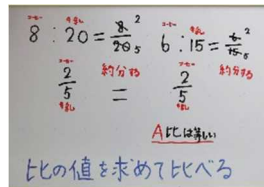 8 : 20 = 8/20 2 5 6 : 15 = 6/15 2 5
2/5 約分する = 2/5 約分する
A 比は等しい
比の値を求めて比べる